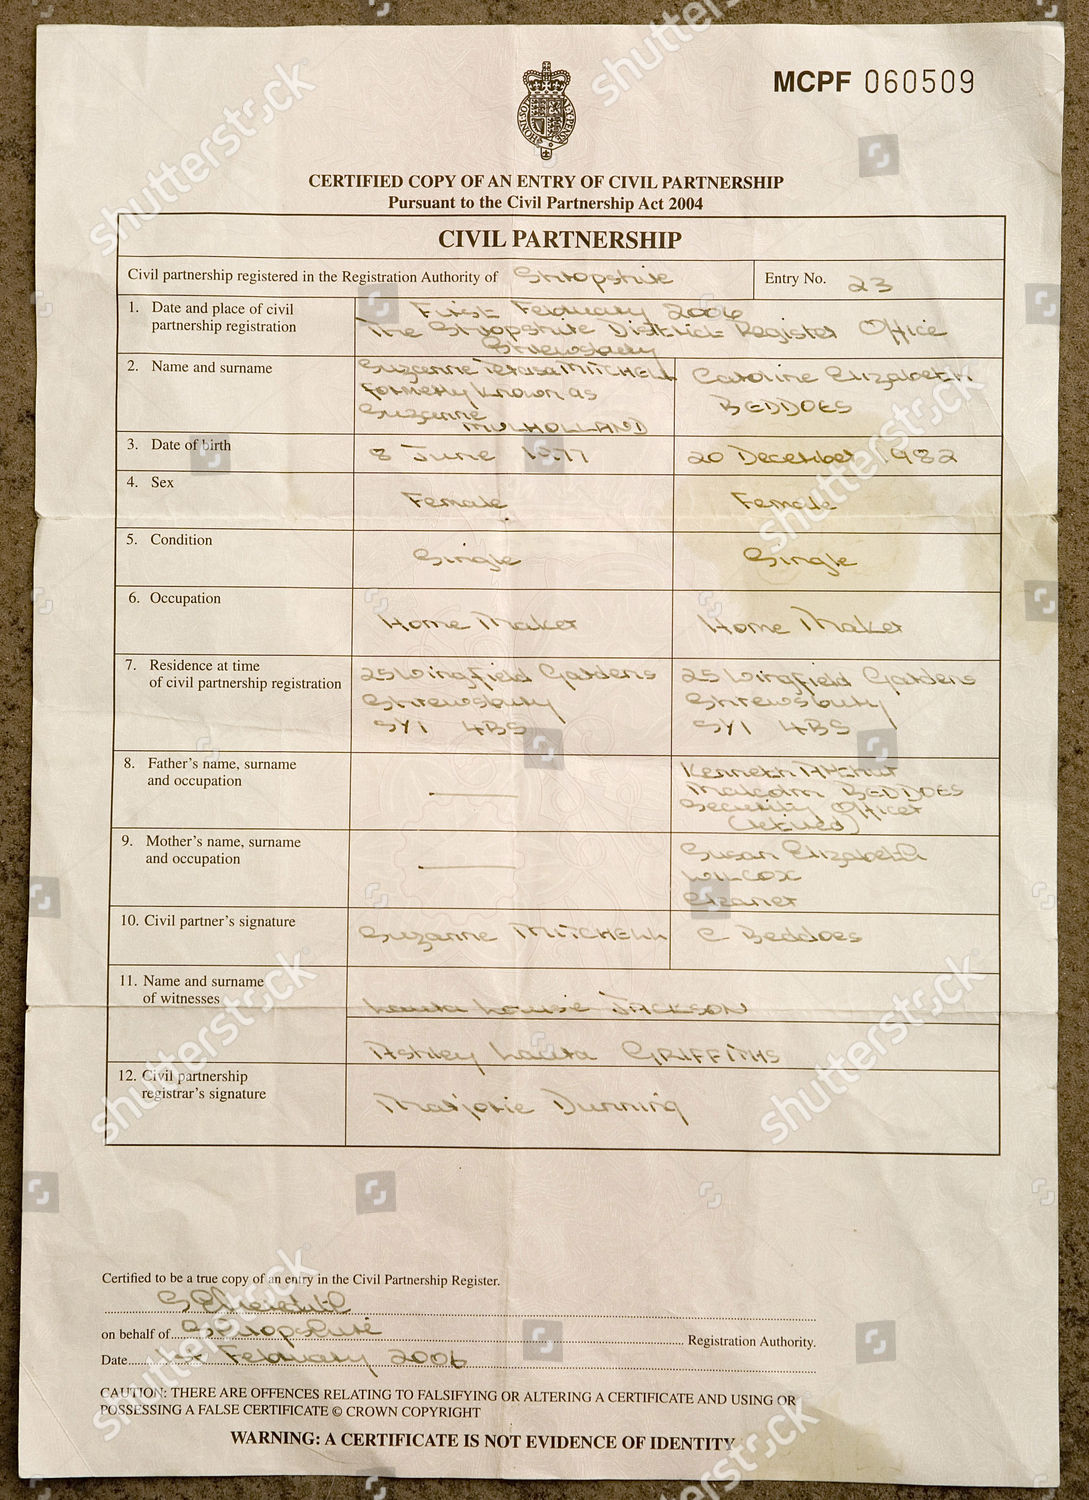 MCPF 060509
CERTIFIED COPY OF AN ENTRY OF CIVIL PARTNERSHIP
Pursuant to the Civil Partnership Act 2004
CIVIL PARTNERSHIP
Civil partnership registered in the Registration Authority of Shropshire Entry No. 23
1. Date and place of civil partnership registration
First February 2006
The Shropshire District Register Office
Shrewsbury
2. Name and surname
Suzanne Teresa MITCHELL
formerly known as
Suzanne
MULHOLLAND
Caroline Elizabeth
BEDDOES
3. Date of birth 8 June 1977 20 December 1982
4. Sex Female Female
5. Condition Single Single
6. Occupation Home Maker Home Maker
7. Residence at time
of civil partnership registration
25 Wingfield Gardens
Shrewsbury
SY1 4BS
25 Wingfield Gardens
Shrewsbury
SY1 4BS
8. Father's name, surname
and occupation
Kenneth Arthur
Malcolm BEDDOES
Security Officer
(retired)
9. Mother's name, surname
and occupation
Susan Elizabeth
WILCOX
Cleaner
10. Civil partner's signature Suzanne MITCHELL C Beddoes
11. Name and surname
of witnesses
Laura Louise JACKSON
Ashley Laura GRIFFITHS
12. Civil partnership
registrar's signature
Marjorie Dunning
Certified to be a true copy of an entry in the Civil Partnership Register.
on behalf of Shropshire Registration Authority.
Date February 2006
CAUTION: THERE ARE OFFENCES RELATING TO FALSIFYING OR ALTERING A CERTIFICATE AND USING OR
POSSESSING A FALSE CERTIFICATE © CROWN COPYRIGHT
WARNING: A CERTIFICATE IS NOT EVIDENCE OF IDENTITY
shutterstock